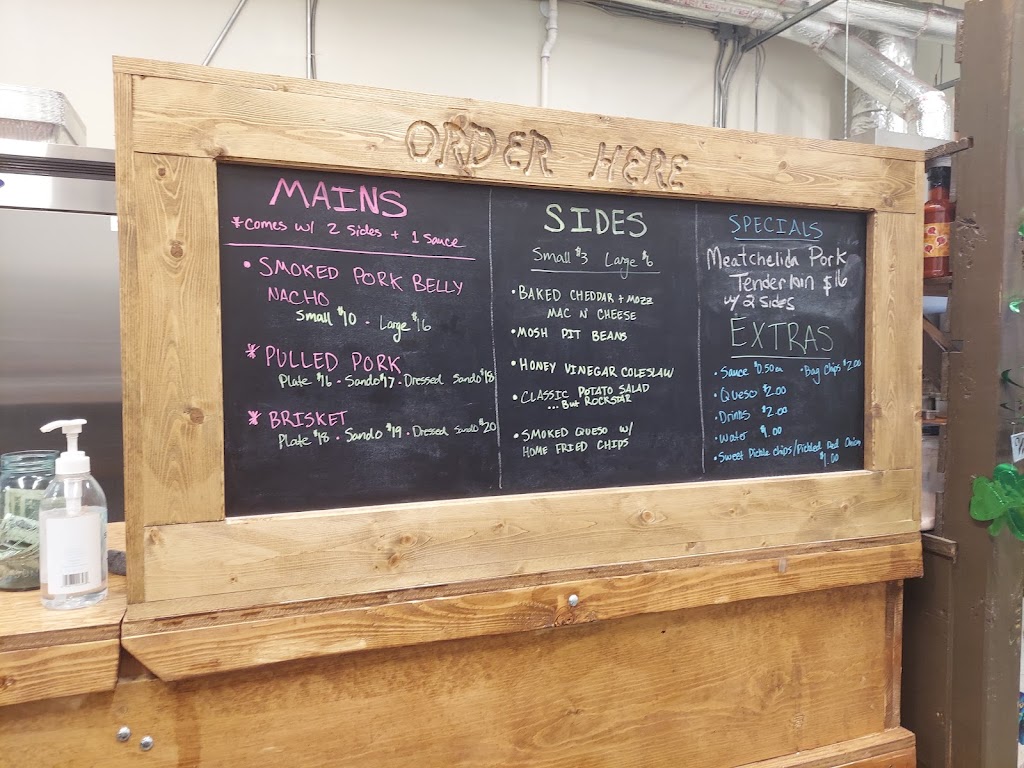 ORDER HERE
MAINS
*Comes w/ 2 sides + 1 sauce
• SMOKED PORK BELLY
NACHO
Small $10 - Large $16
* PULLED PORK
Plate $16 • Sando $17 • Dressed Sando $18
* BRISKET
Plate $18 • Sando $19 • Dressed Sando $20
SIDES
Small $3 Large $6
• BAKED CHEDDAR + MOZZ
MAC N' CHEESE
• MOSH PIT BEANS
• HONEY VINEGAR COLESLAW
• CLASSIC POTATO SALAD
...BUT ROCKSTAR
• SMOKED QUESO W/
HOME FRIED CHIPS
SPECIALS
Meatchelida Pork
Tenderloin $16
w/ 2 sides
EXTRAS
• Sauce $0.50 ea • Bag Chips $2.00
• Queso $2.00
• Drinks $2.00
• Water $1.00
• Sweet Pickle chips/Pickled Red Onion
$1.00